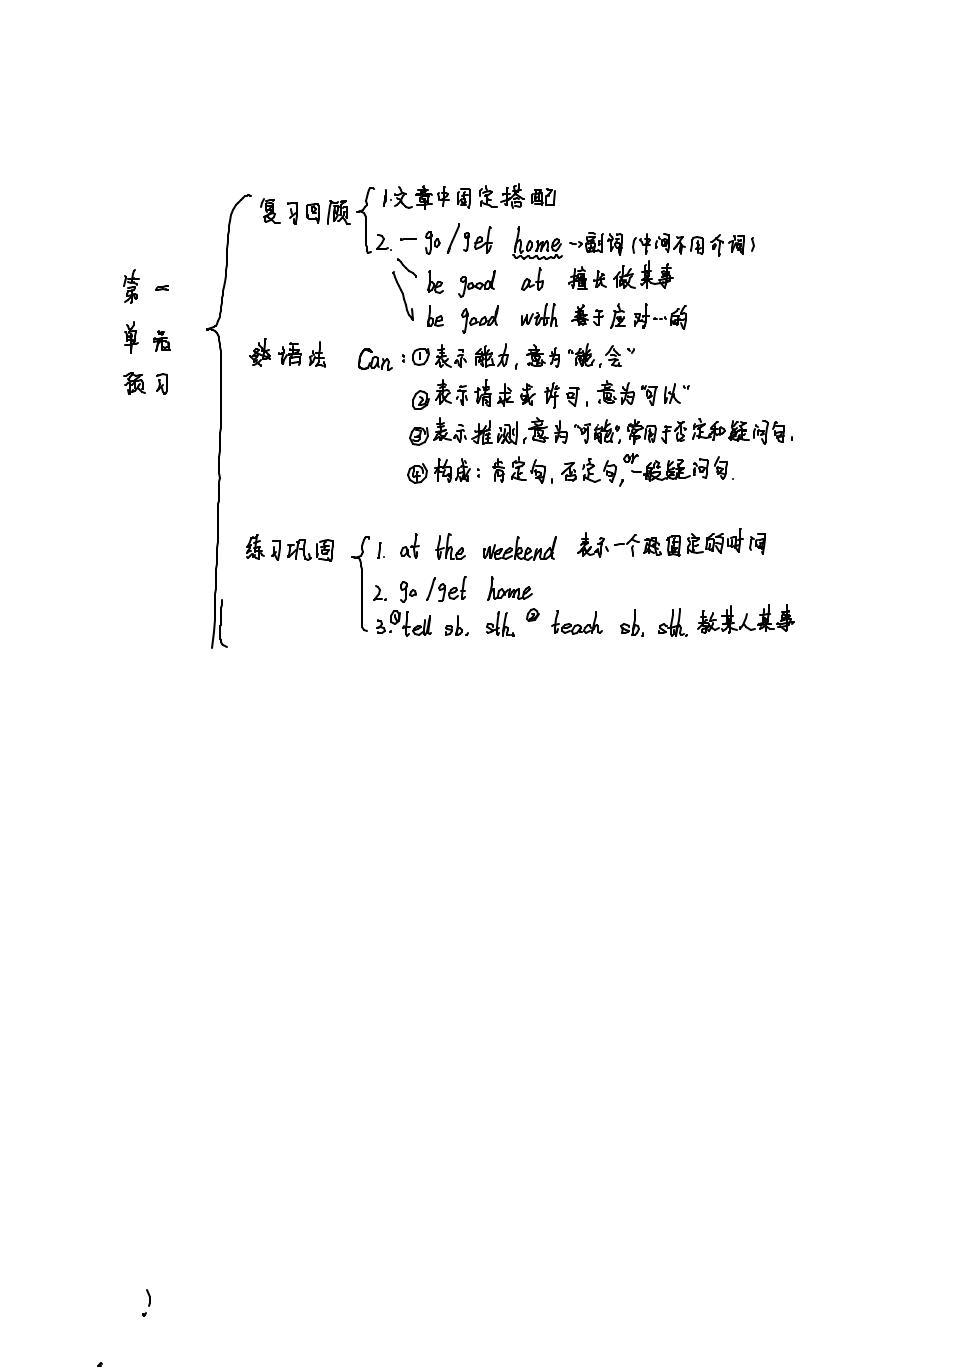 第一
单元
预习
复习回顾
1.文章中固定搭配
2. — go/get home→副词(中间不用介词)
be good at 擅长做某事
be good with 善于应对…的
语法 Can:①表示能力,意为"能,会"
②表示请求或许可,意为"可以"
③表示推测,意为"可能",常用于否定和疑问句.
④构成:肯定句,否定句,or一般疑问句.
练习巩固
1. at the weekend 表示一个固定的时间
2. go/get home
3.①tell sb. sth. ② teach sb. sth. 教某人某事